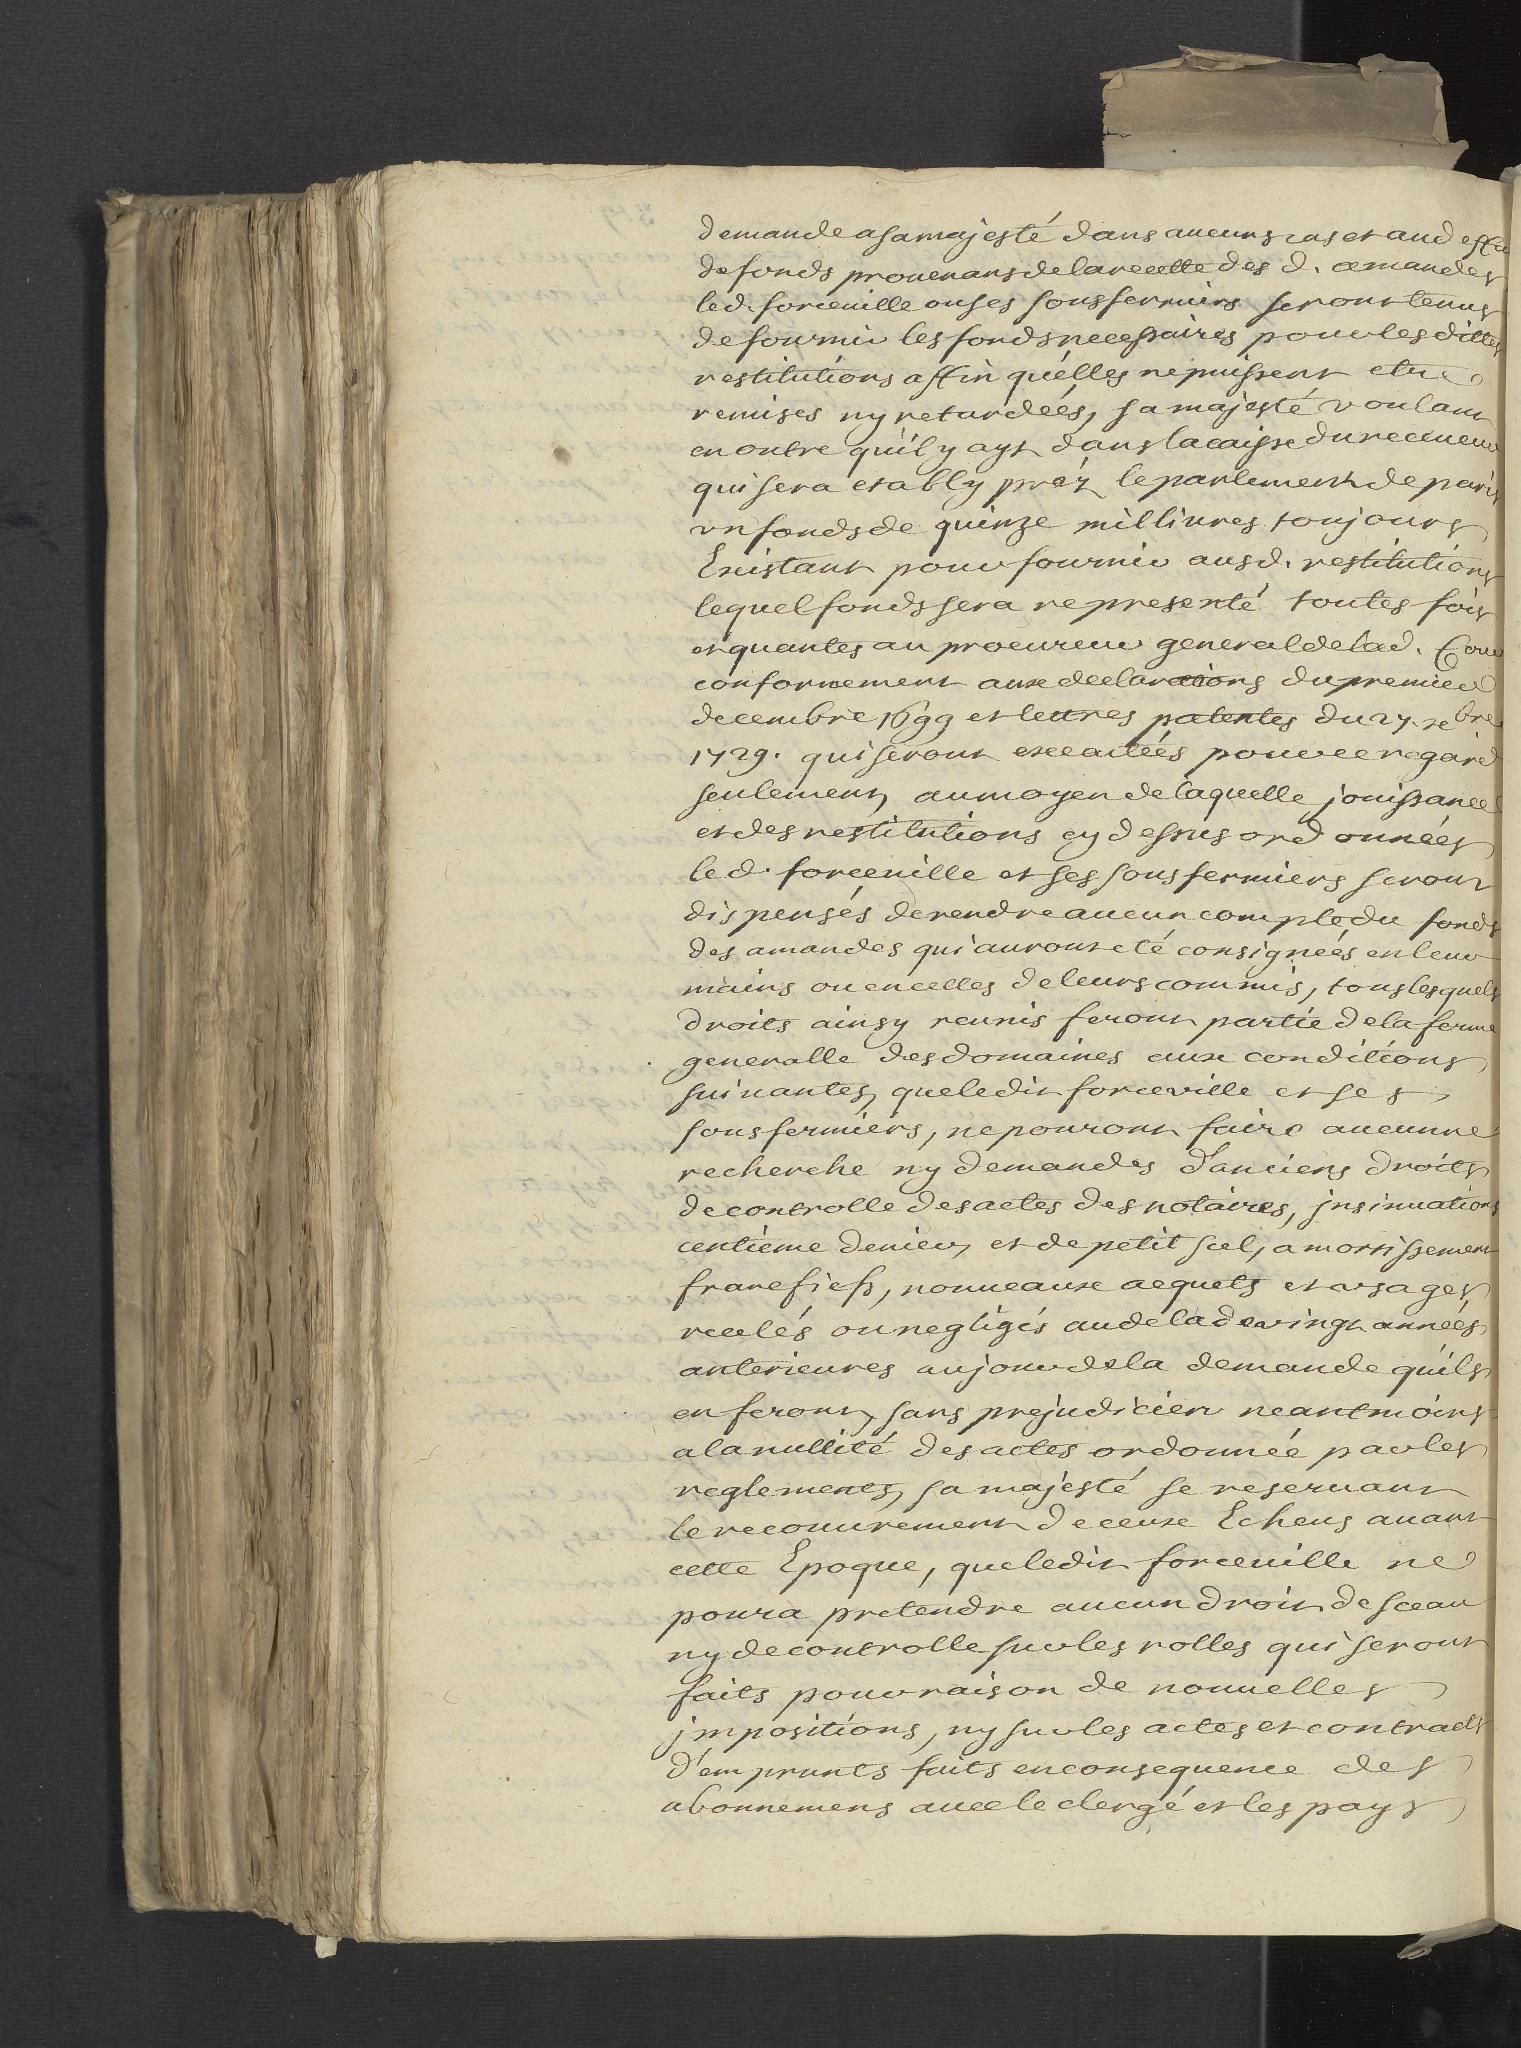 demande a sa majesté dans aucuns cas et aud effet
de fonds provenans de la recette des d. amandes
led. forceville ou ses sousfermiers seront tenus
de fournir les fonds necessaires pour les dittes
restitutions affin qu'elles ne puissent etre
remises ny retardeés, sa majesté voulant
en outre qu'il y ayt dans la caisse du receveur
qui sera etably préz le parlement de paris
un fonds de quinze mil livres toujours
Existant pour fournir ausd. restitutions
lequel fonds sera representé toutes fois
et quantes au procureur general de lad. Cour
conformement aux declarations du premier
decembre 1699 et lettres patentes du 27. xbre
1729. qui seront executeés pour ce regard
seulement, au moyen de laquelle jouissance
et des restitutions cy dessus ordonnées
led. forceville et ses sousfermiers seront
dispensés de rendre aucun compte du fonds
des amandes qui auront eté consignées en leur
mains ou en celles de leurs commis, tous lesquels
droits ainsy reunis feront partie de la ferme
generalle des domaines aux conditions
suivantes, que ledit forceville et ses
sousfermiers, ne pouront faire aucunne
recherche ny demandes d'anciens droits
de controlle des actes des notaires, jnsinuations
centieme denier, et de petit scel, amortissement
francfiefs, nouveaux acquets et usages
recelés ou negligés au dela de vingt années
anterieures au jour de la demande qu'ils
en feront, sans prejudicier neantmoins
a la nullité des actes ordonnée par les
reglements, sa majesté se reservant
le recouvrement de ceux Echeus avant
cette Epoque, que ledit forceville ne
poura pretendre aucun droit de sceau
ny de controlle sur les rolles qui seront
faits pour raison de nouvelles
jmpositions, ny sur les actes et contracts
d'emprunts faits en consequence des
abonnemens avec le clergé et les pays